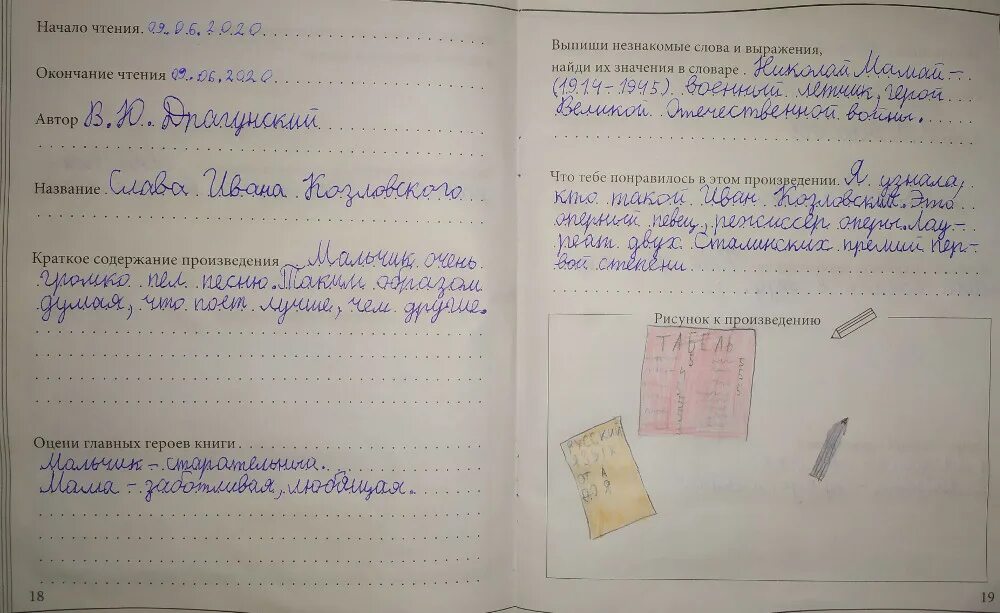 Начало чтения. 09.06.2020
Окончание чтения 09.06.2020
Автор В.Ю. Драгунский
Название Слава Ивана Козловского
Краткое содержание произведения Мальчик очень
громко пел песню. Таким образом
думая, что поёт лучше, чем другие.
Оцени главных героев книги
Мальчик – старательный.
Мама – заботливая, любящая.
18
Выпиши незнакомые слова и выражения,
найди их значения в словаре. Николай Мамай –
(1914-1945). военный летчик, герой
Великой Отечественной войны.
Что тебе понравилось в этом произведении. Я узнала,
кто такой Иван Козловский. Это
оперный певец, режиссёр оперы. Лау-
реат двух Сталинских премий пер-
вой степени
Рисунок к произведению
ТАБЕЛЬ
РУССКИЙ
ЯЗЫК
ОТ А
ДО Я
19